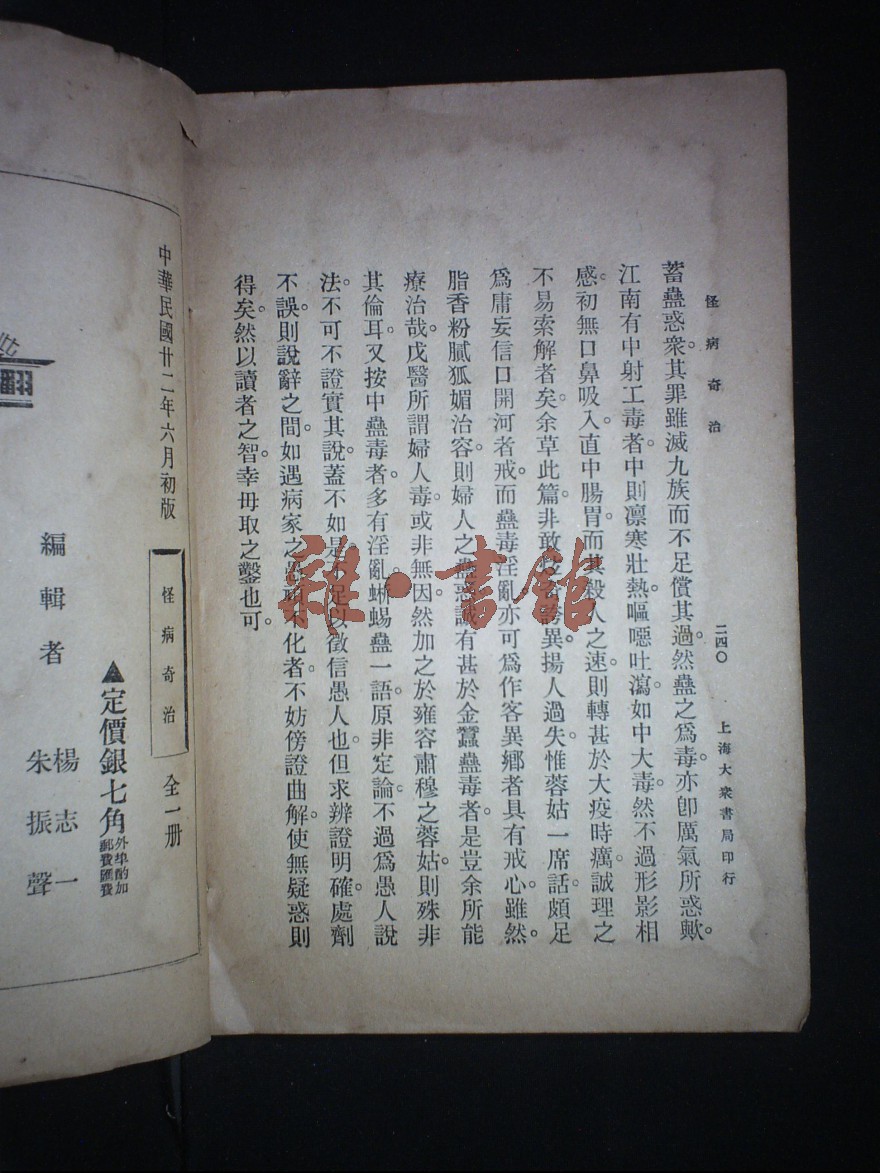 怪病奇治
二四〇
上海大衆書局印行
蓄蠱惑衆。其罪雖滅九族而不足償其過。然蠱之爲毒。亦卽厲氣所惑歟。
江南有中射工毒者。中則凛寒壯熱。嘔噁吐瀉。如中大毒。然不過形影相
感。初無口鼻吸入。直中腸胃。而其殺人之速。則轉甚於大疫時癘。誠理之
不易索解者矣。余草此篇。非敢炫奇誇異。揚人過失。惟蓉姑一席話。頗足
爲庸妄信口開河者戒。而蠱毒淫亂。亦可爲作客異鄕者具有戒心。雖然。
脂香粉膩。狐媚冶容。則婦人之蠱惑。誠有甚於金蠶蠱毒者。是豈余所能
療治哉。戊醫所謂婦人毒。或非無因。然加之於雍容肅穆之蓉姑。則殊非
其倫耳。又按中蠱毒者。多有淫亂。蜥蜴蠱一語。原非定論。不過爲愚人說
法。不可不證實其說。蓋不如是不足以徵信愚人也。但求辨證明確。處劑
不誤。則說辭之間。如遇病家之愚頑不化者。不妨傍證曲解。使無疑惑則
得矣。然以讀者之智。幸毋取之鑿也可。
雜·書館
中華民國廿二年六月初版
怪病奇治
全一册
▲定價銀七角
外埠酌加
郵費匯費
編輯者
楊志一
朱振聲